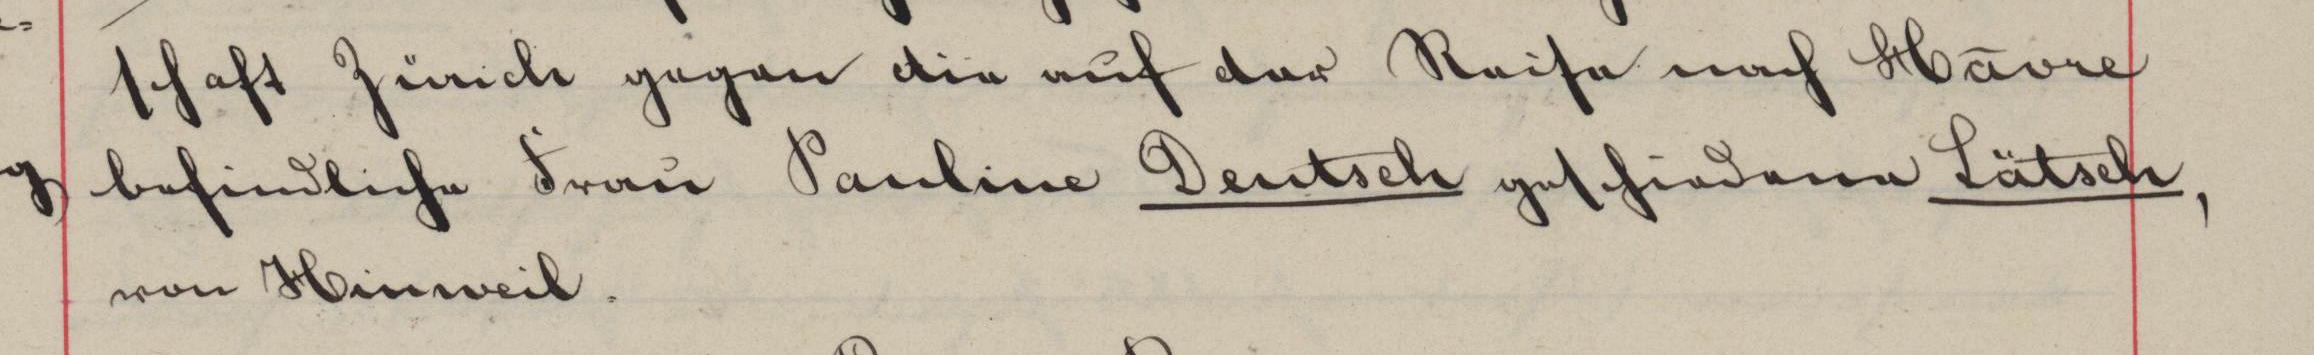 schaft Zürich gegen die auf der Reise nach Hāvre
befindliche Frau Pauline Deutsch geschiedene Lätsch,
von Hinweil.